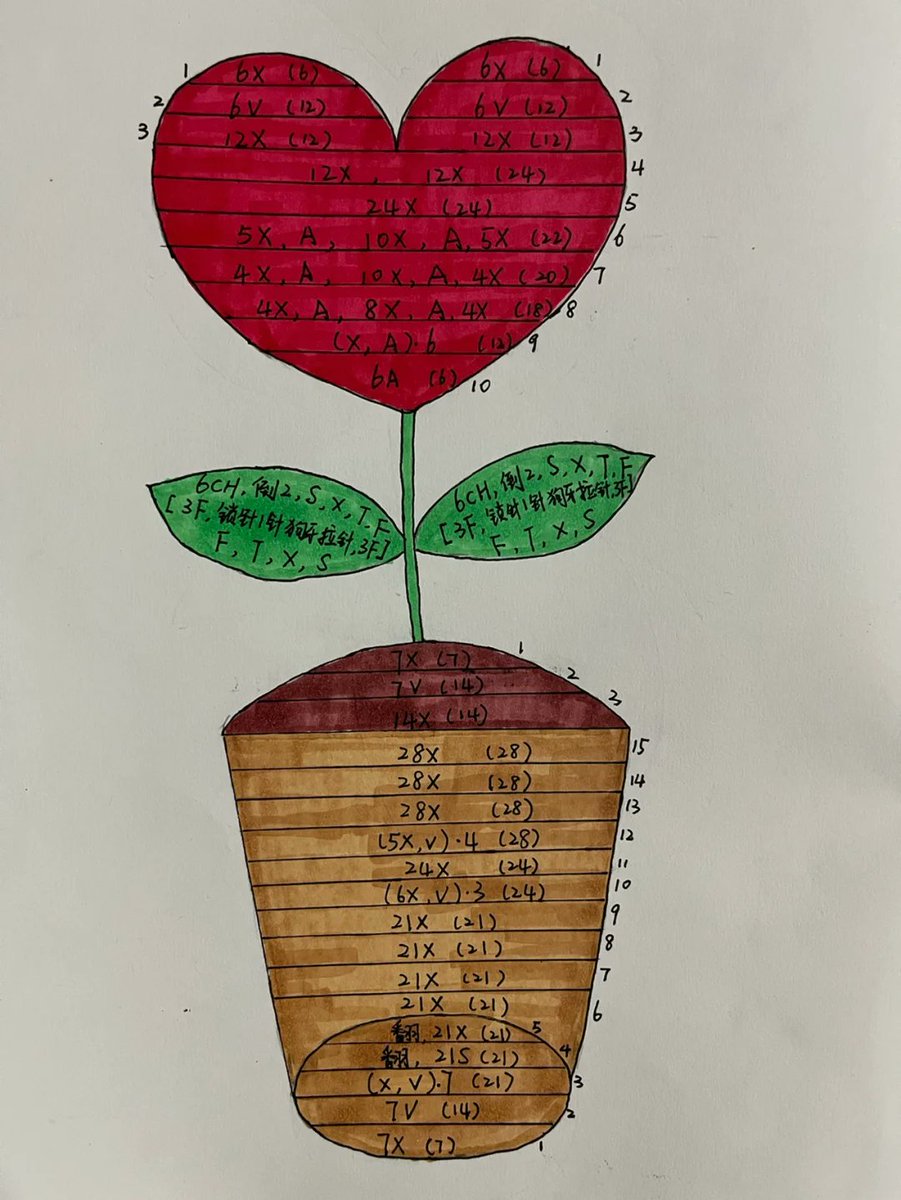 1 6X (6) 6X (6) 1
2 6V (12) 6V (12) 2
3 12X (12) 12X (12) 3
12X, 12X (24) 4
24X (24) 5
5X, A, 10X, A, 5X (22) 6
4X, A, 10X, A, 4X (20) 7
4X, A, 8X, A, 4X (18) 8
(X, A)·6 (12) 9
6A (6) 10
6CH, 倒2, S, X, T, F
[3F, 锁针1针狗牙拉针, 3F]
F, T, X, S
6CH, 倒2, S, X, T, F
[3F, 锁针1针狗牙拉针, 3F]
F, T, X, S
7X (7) 1
7V (14) 2
14X (14) 3
28X (28) 15
28X (28) 14
28X (28) 13
(5X, V)·4 (28) 12
24X (24) 11
(6X, V)·3 (24) 10
21X (21) 9
21X (21) 8
21X (21) 7
21X (21) 6
翻, 21X (21) 5
翻, 21S (21) 4
(X, V)·7 (21) 3
7V (14) 2
7X (7) 1